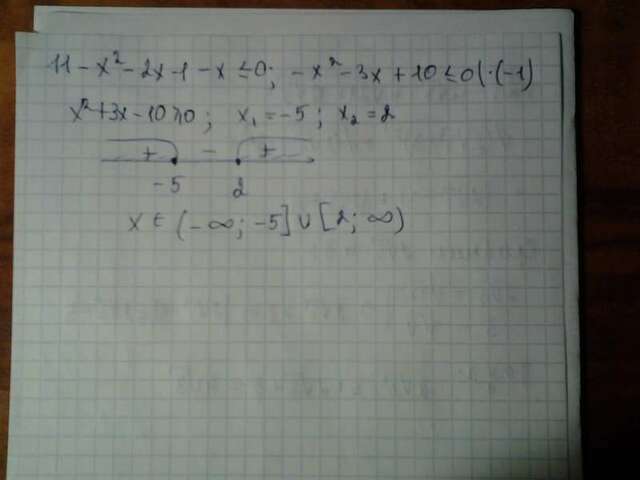 11 - x² - 2x - 1 - x ≤ 0; -x² - 3x + 10 ≤ 0 | · (-1)
x² + 3x - 10 ≥ 0; x₁ = -5; x₂ = 2
+ - +
-5 2
x ∈ (-∞; -5] ∪ [2; ∞)